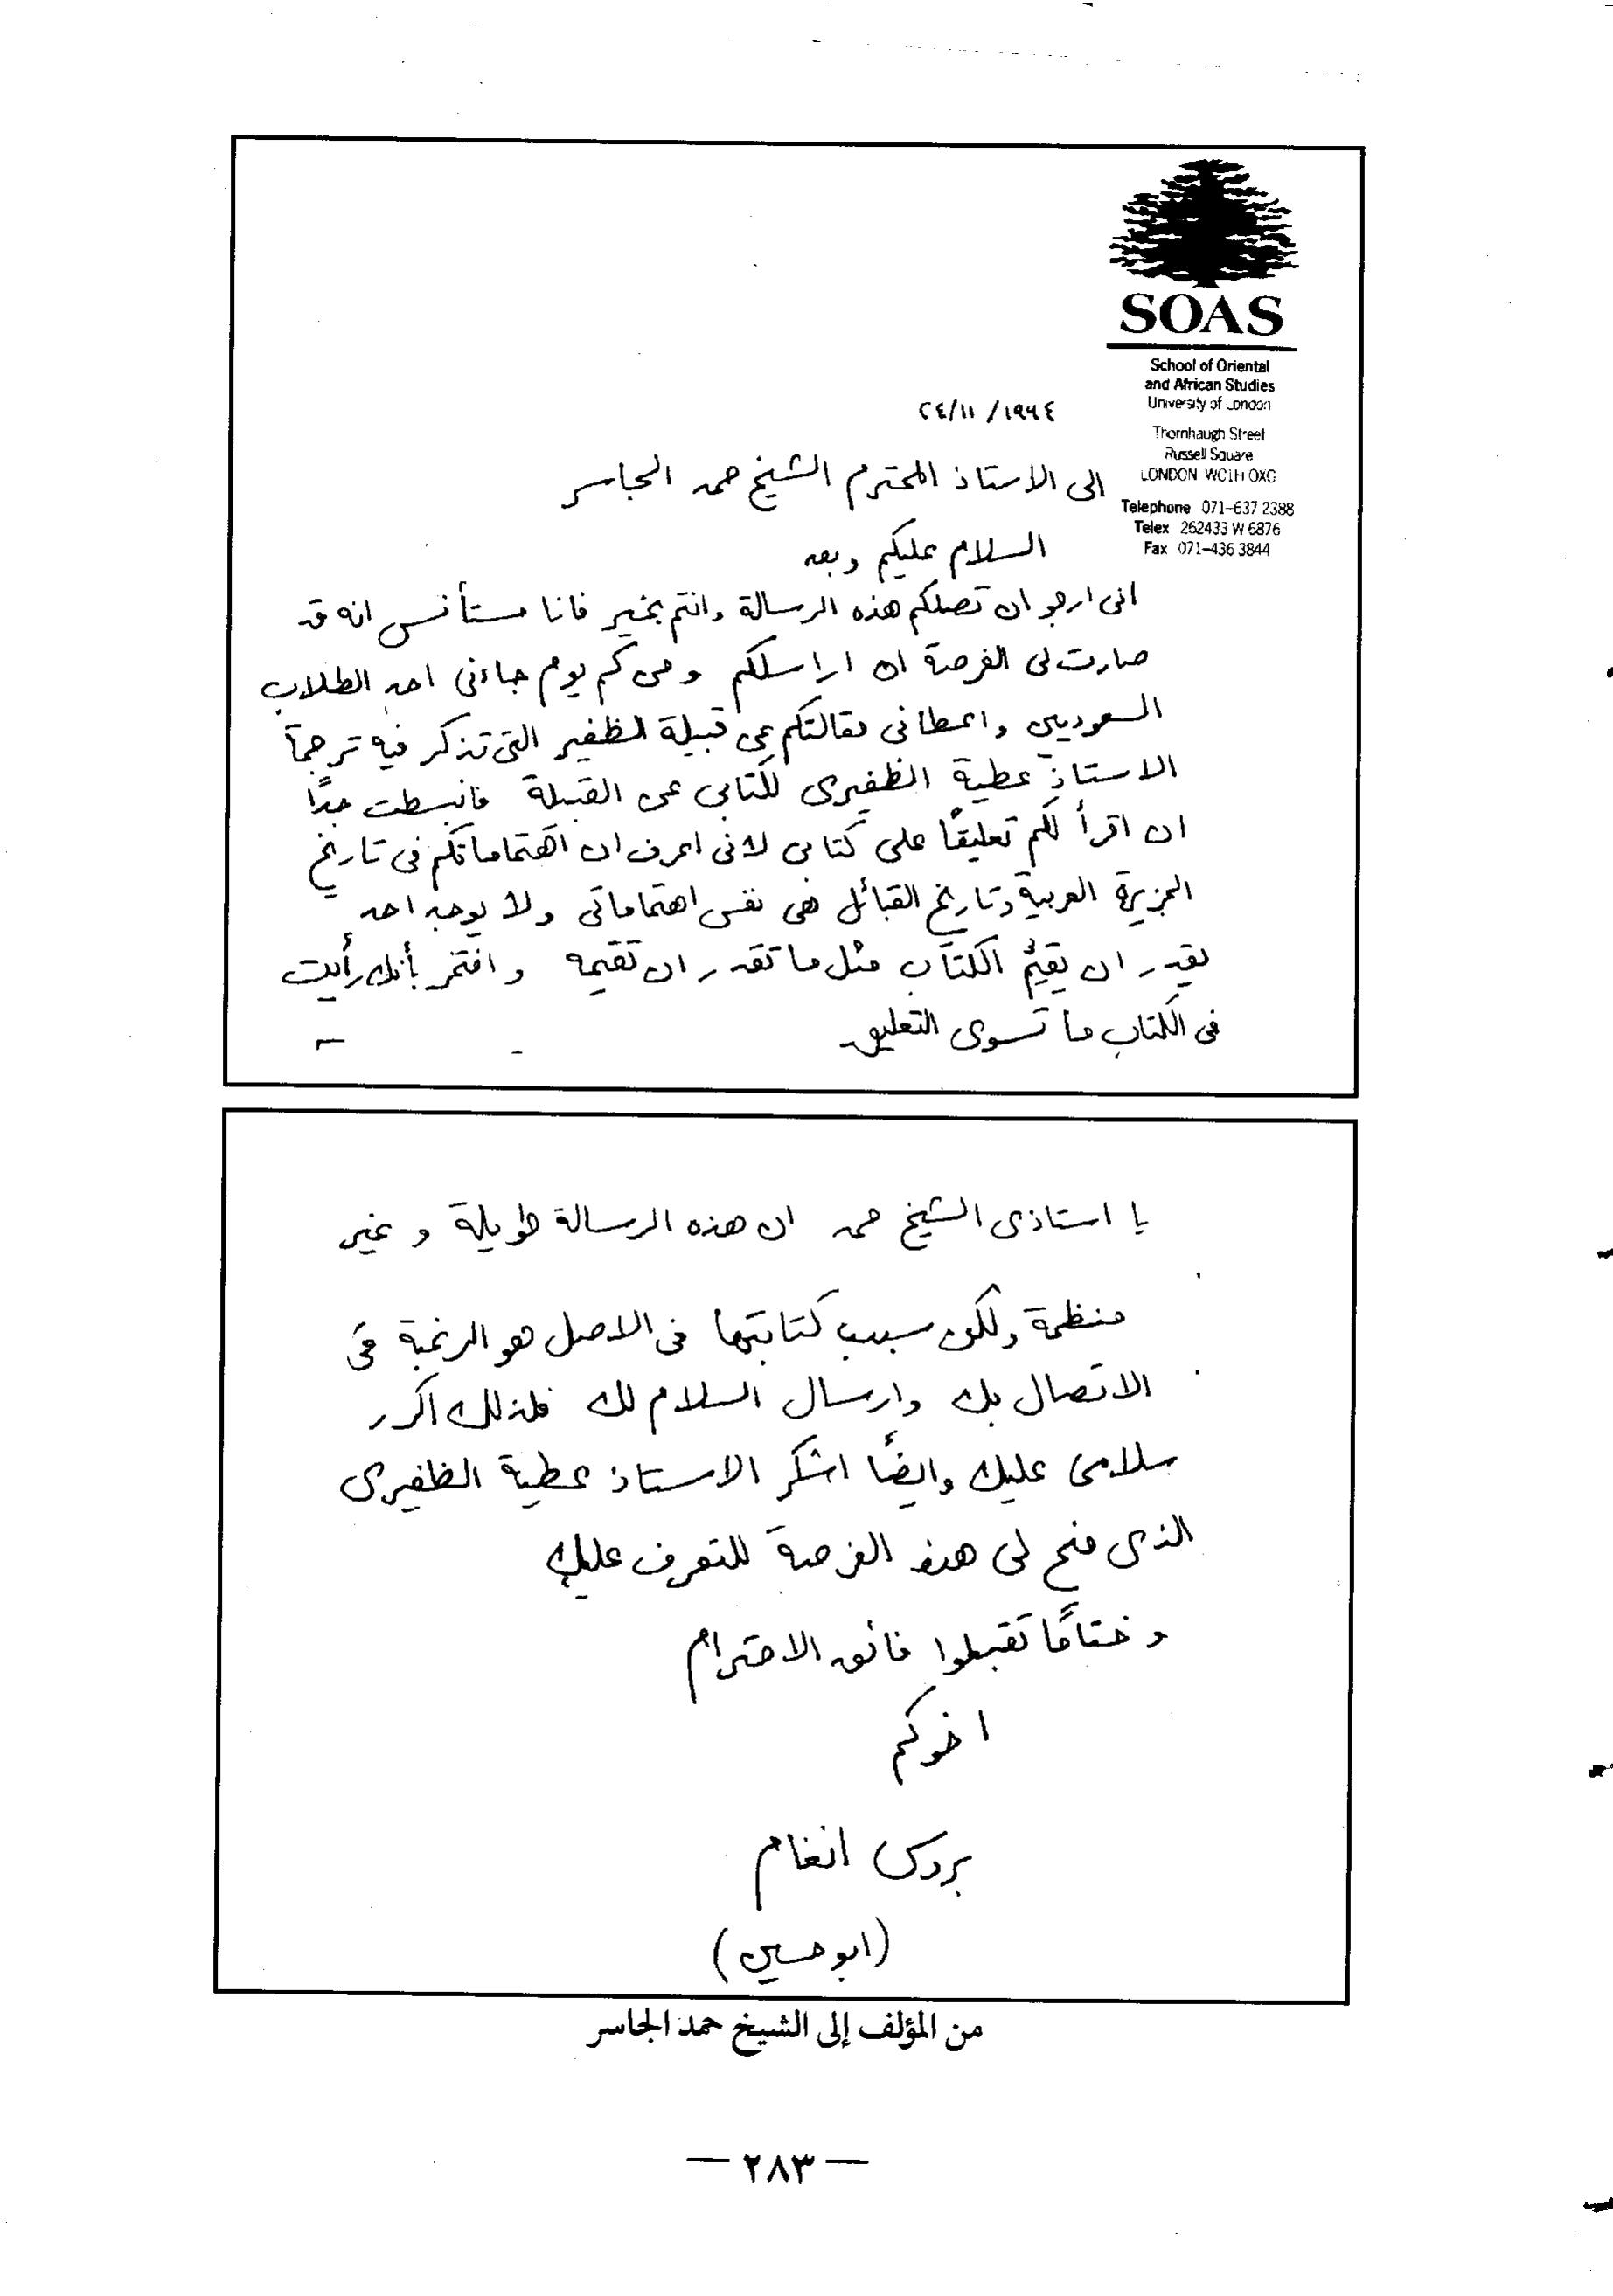 SOAS
School of Oriental
and African Studies
University of London
Thornhaugh Street
Russell Square
LONDON WC1H 0XG
Telephone 071-637 2388
Telex 262433 W 6876
Fax 071-436 3844
٢٤/١١/١٩٩٤
الى الاستاذ المحترم الشيخ حمد الجاسر
السلام عليكم وبعد
انى ارجو ان تصلكم هذه الرسالة وانتم بخير فانا مستأنس انه قد
صارت لى الفرصة ان اراسلكم ومن كم يوم جاءنى احد الطلاب
السعوديين واعطانى مقالتكم عن قبيلة الظفير التى تذكر فيه ترجمة
الاستاذ عطية الظفيرى لكتابى عن القبيلة فانبسطت جدًا
ان اقرأ لكم تعليقًا على كتابى لانى اعرف ان اهتماماتكم فى تاريخ
الجزيرة العربية وتاريخ القبائل هى نفس اهتماماتى ولا يوجد احد
يقدر ان يقيّم الكتاب مثل ما تقدر ان تقيمه وافتخر بأنك رأيت
فى الكتاب ما تسوى التعليق
يا استاذى الشيخ حمد ان هذه الرسالة طويلة وغير
منظمة ولكن سبب كتابتها فى الاصل هو الرغبة فى
الاتصال بك وارسال السلام لك فلذلك اكرر
سلامى عليك وايضًا اشكر الاستاذ عطية الظفيرى
الذى منح لى هذه الفرصة للتعرف عليك
وختامًا تقبلوا فائق الاحترام
اخوكم
بروس انغام
(ابو حسين)
من المؤلف إلى الشيخ حمد الجاسر
— ٢٨٣ —